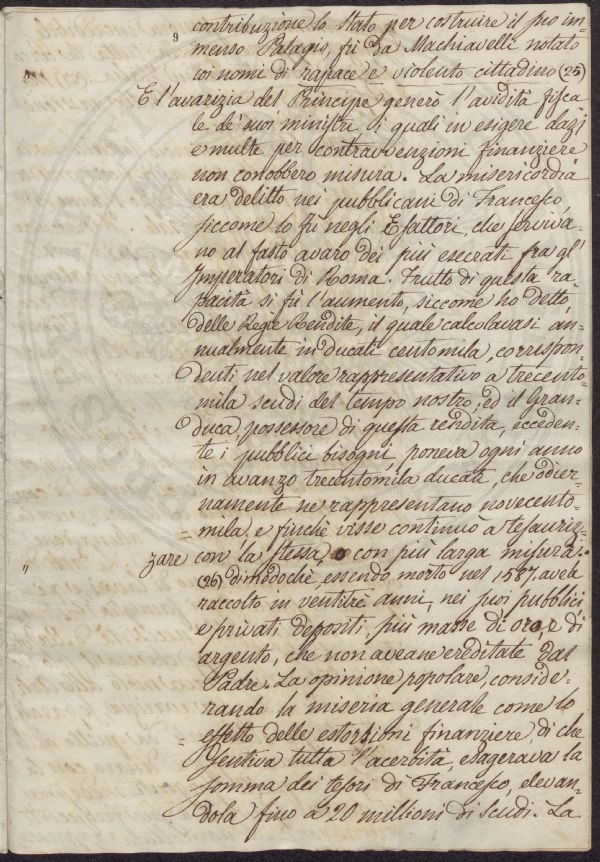 9
contribuzione lo Stato per costruire il suo im=
menso Palagio, fù da Machiavelli notato
coi nomi di rapace e violento cittadino (25)
E l'avarizia del Principe generò l'avidità fisca
le de' suoi ministri, i quali in esigere dazi
e multe per contravvenzioni finanziere
non conobbero misura. La misericordia
era delitto nei pubblicani di Francesco,
siccome lo fù negli Esattori, che serviva=
no al fasto avaro dei più esecrati fra gl'
Imperatori di Roma. Frutto di questa ra=
pacità si fù l'aumento, siccome ho detto,
delle Regie Rendite, il quale calcolavasi an=
nualmente in ducati centomila, corrispon=
denti nel valore rappresentativo a trecento
mila scudi del tempo nostro, ed il Gran=
duca possessore di questa rendita, ecceden=
te i pubblici bisogni, poneva ogni anno
in avanzo trecentomila ducati, che odier=
namente ne rappresentano novecento=
=mila, e finchè visse continuò a tesauriz=
zare con la stessa, o con più larga misura.
" (26) dimodochè, essendo morto nel 1587, avea
raccolto in ventitrè anni, nei suoi pubblici
e privati depositi, più masse di oro, e di
argento, che non aveane ereditate dal
Padre. La opinione popolare, conside=
rando la miseria generale come lo
effetto delle estorsioni finanziere, di che
sentiva tutta l'acerbità, esagerava la
somma dei tesori di Francesco, elevan=
dola fino a 20 millioni di scudi. La